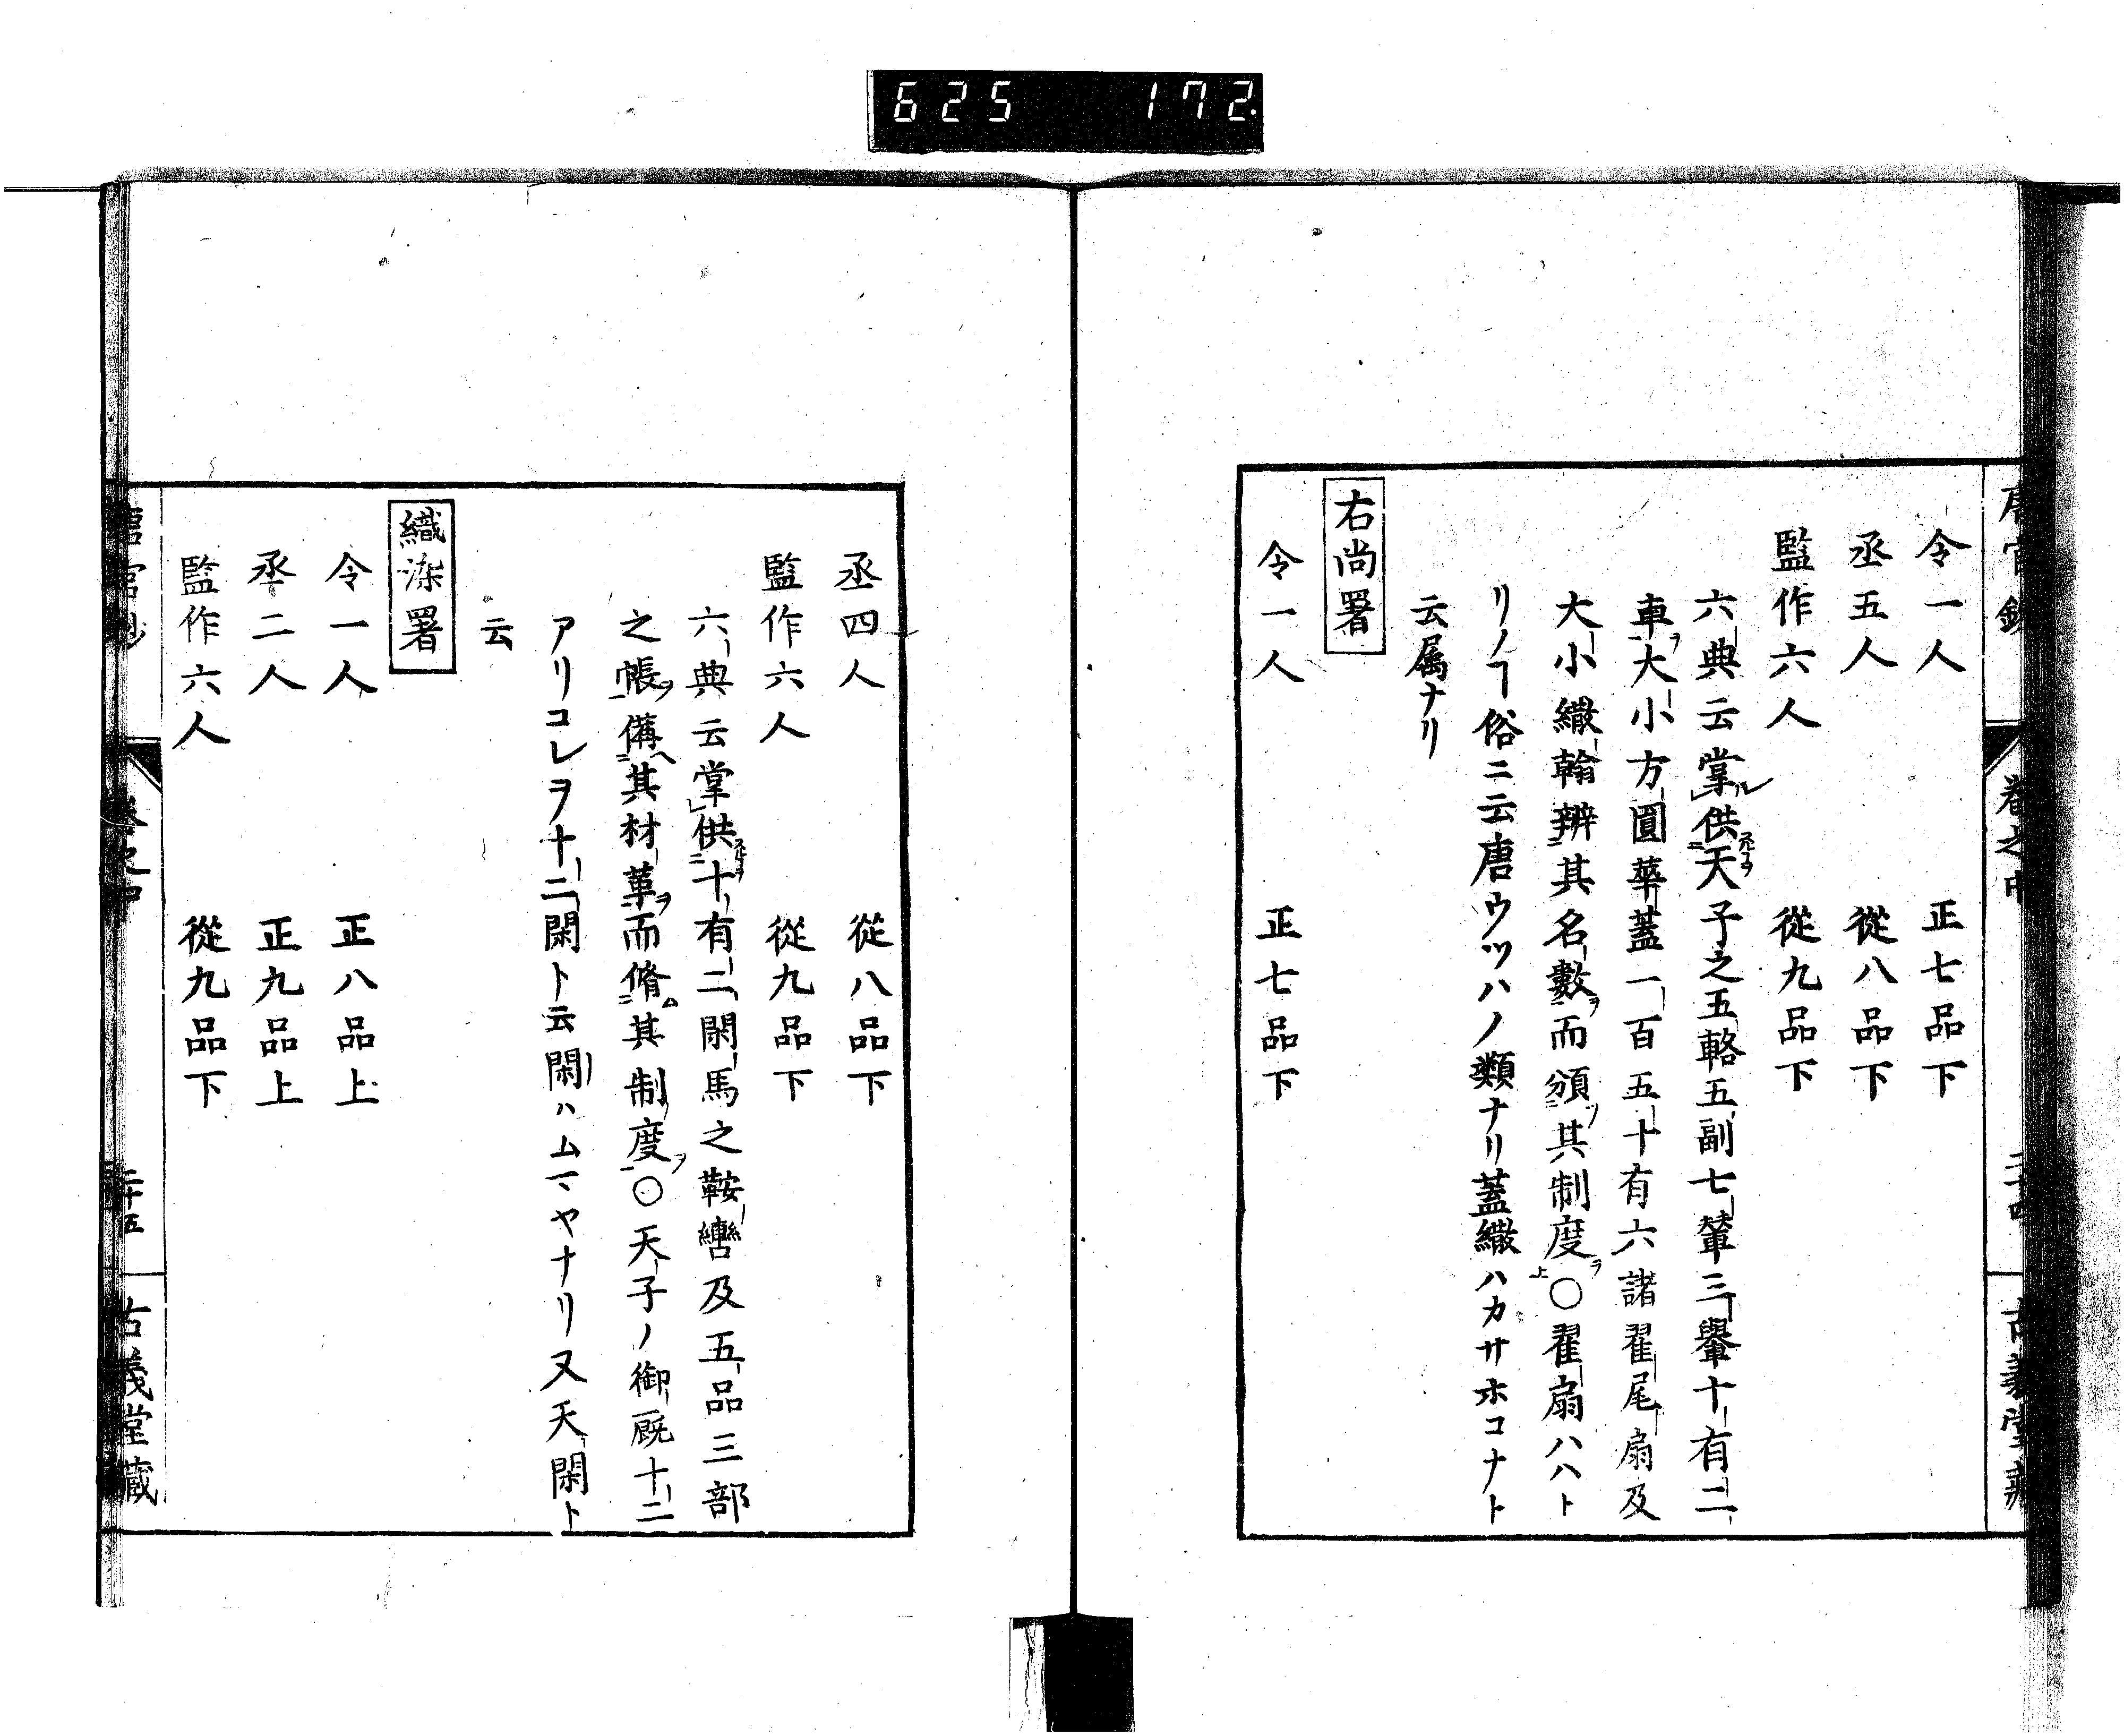 625 172.
令一人 正七品下
丞五人 從八品下
監作六人 從九品下
六典云掌供天子之五輅五副七輦三轝十有二
車大小方圓華蓋一百五十有六諸翟尾扇及
大小繖翰辨其名數而頒其制度○翟扇ハハト
リノヿ俗ニ云唐ウツハノ類ナリ蓋繖ハカサホコナト
云属ナリ
右尚署
令一人 正七品下
丞四人 從八品下
監作六人 從九品下
六典云掌供十有二閑馬之鞍轡及五品三部
之帳備其材革而脩其制度○天子ノ御厩十二
アリコレヲ十二閑ト云閑ハムマヤナリ又天閑ト
云
織染署
令一人 正八品上
丞二人 正九品上
監作六人 從九品下
卷之中 二十五 古義堂藏